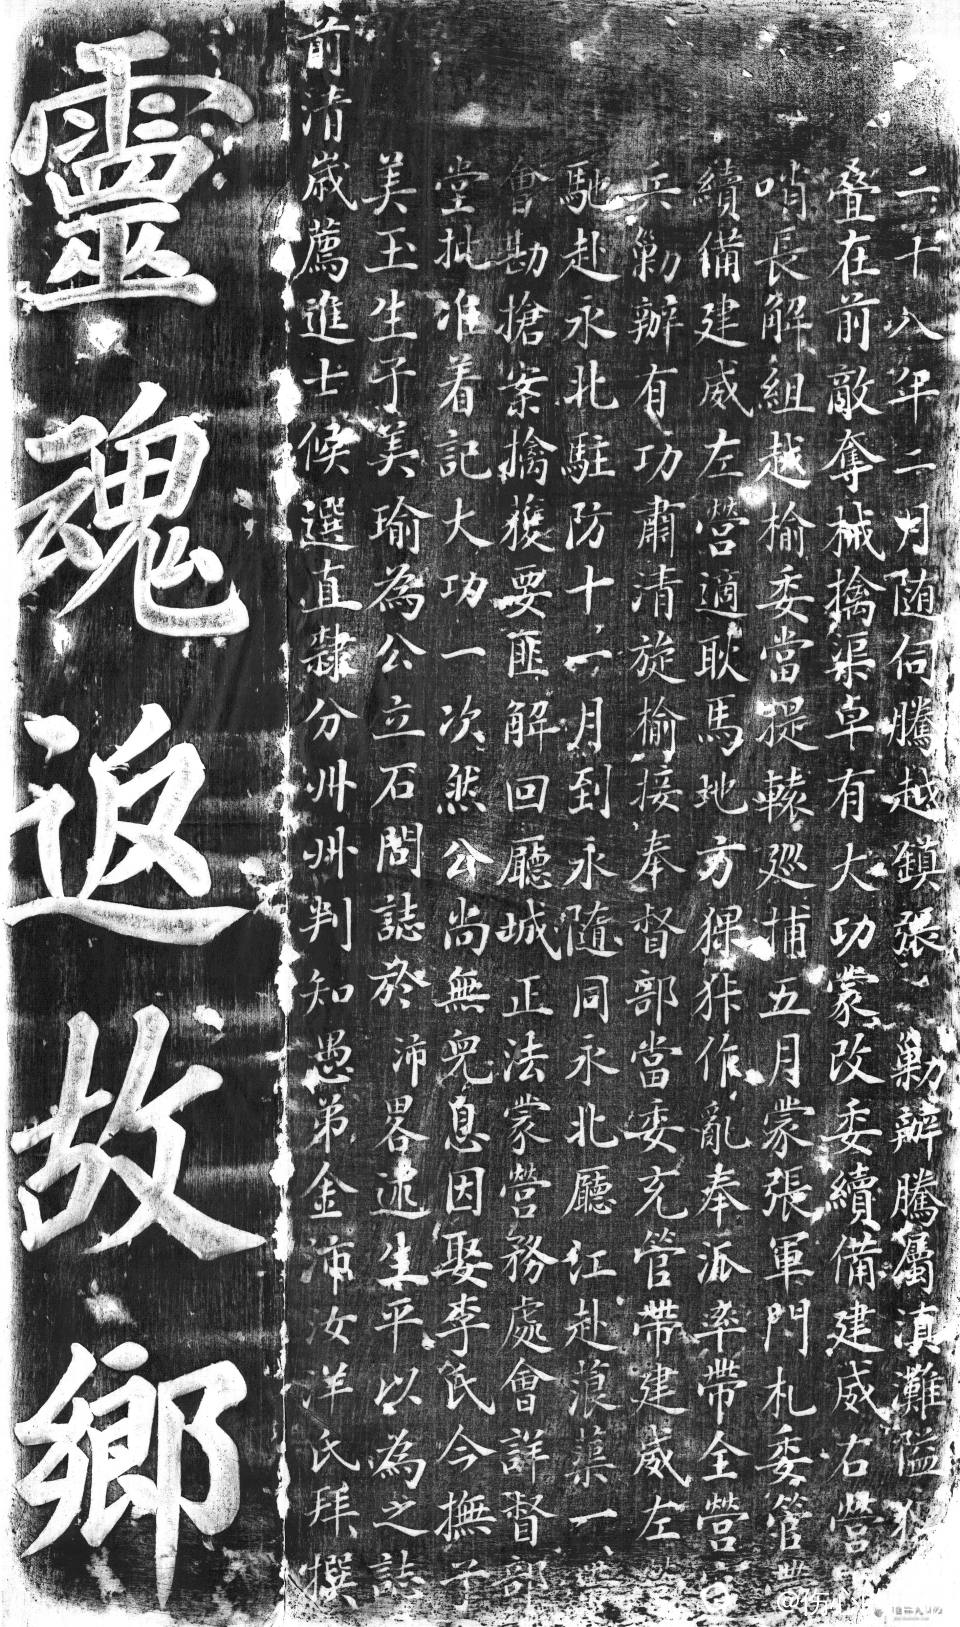 二十八年二月随同騰越鎮張 勦辦騰屬滇灘隘
叠在前敵奪械擒渠卓有大功蒙改委續備建威右營
哨長解組越榆委當提轅廵捕五月蒙張軍門札委管帶
續備建威左營適耿馬地方猓㹻作亂奉派率帶全營
兵勦辦有功肅清旋榆接奉督部當委充管帶建威左營
馳赴永北駐防十一月到永隨同永北廳江赴蒗蕖一帶
會勘搶案擒獲要匪解回廳城正法蒙營務處會詳督部
堂批准着記大功一次然公尚無兒息因娶李氏今撫子
美玉生子美瑜為公立石問誌於沛畧述生平以為之誌
前清歲薦進士候選直隸分州州判知愚弟金沛汝洋氏拜撰
靈魂返故鄉